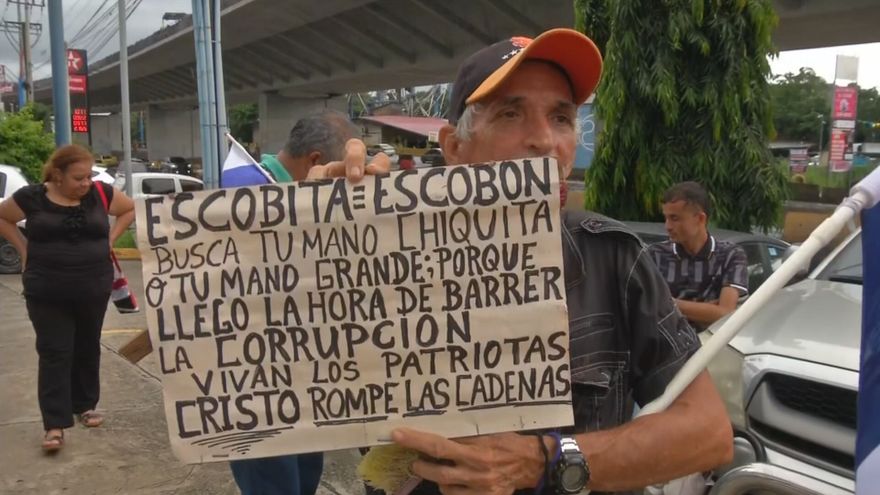 ESCOBITA = ESCOBON
BUSCA TU MANO CHIQUITA
O TU MANO GRANDE; PORQUE
LLEGO LA HORA DE BARRER
LA CORRUPCION
VIVAN LOS PATRIOTAS
CRISTO ROMPE LAS CADENAS